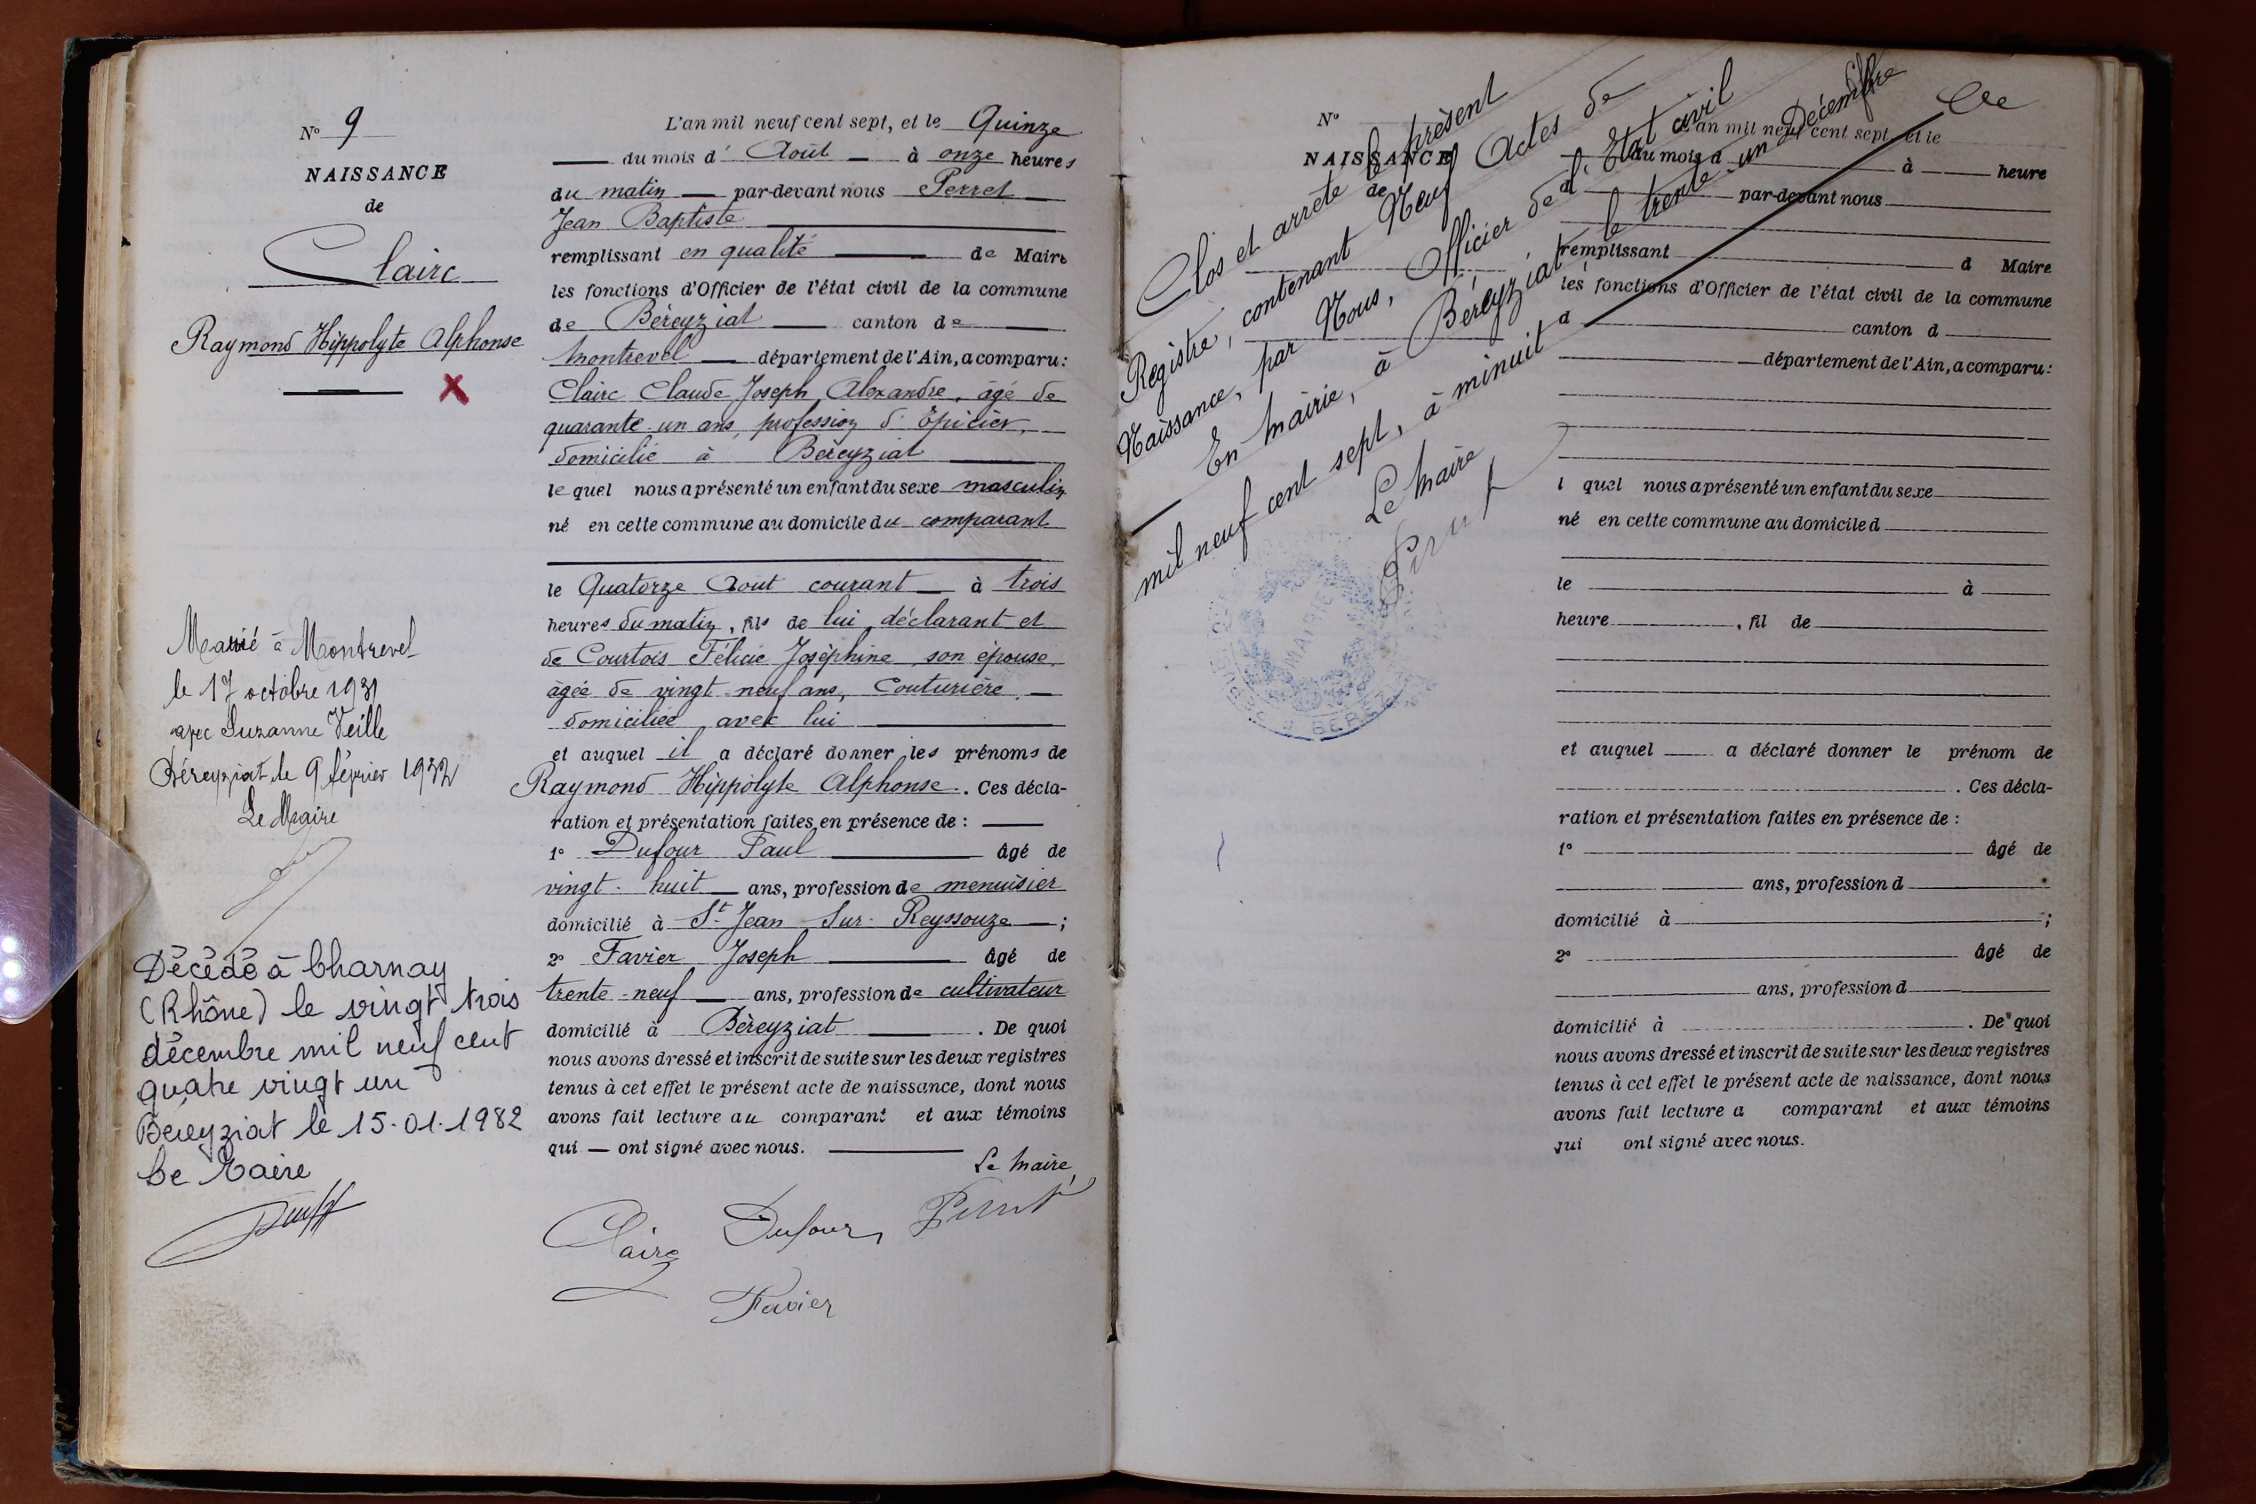 N° 9
NAISSANCE
de
Clairc
Raymond Hippolyte Alphonse
X
Marié à Montrevel
le 17 octobre 1931
avec Suzanne Veille
Béreyziat le 9 février 1932
Le Maire
Décédé à Charnay
(Rhône) le vingt trois
décembre mil neuf cent
quatre vingt un
Béreyziat le 15.01.1982
Le Maire
L'an mil neuf cent sept, et le Quinze
du mois d' Août à onze heures
du matin par-devant nous Perret
Jean Baptiste
remplissant en qualité de Maire
les fonctions d'Officier de l'état civil de la commune
de Béreyziat canton de
Montrevel département de l'Ain, a comparu:
Clairc Claude Joseph Alexandre, âgé de
quarante un ans, profession d'épicier,
domicilié à Béreyziat
lequel nous a présenté un enfant du sexe masculin
né en cette commune au domicile du comparant
le Quatorze Août courant à trois
heures du matin, fils de lui déclarant et
de Courtois Félicie Joséphine, son épouse,
âgée de vingt-neuf ans, Couturière,
domiciliée avec lui
et auquel il a déclaré donner les prénoms de
Raymond Hippolyte Alphonse. Ces décla-
ration et présentation faites en présence de :
1° Dufour Paul âgé de
vingt-huit ans, profession de menuisier
domicilié à St Jean Sur Reyssouze ;
2° Favier Joseph âgé de
trente-neuf ans, profession de cultivateur
domicilié à Béreyziat . De quoi
nous avons dressé et inscrit de suite sur les deux registres
tenus à cet effet le présent acte de naissance, dont nous
avons fait lecture au comparant et aux témoins
qui — ont signé avec nous.
Le Maire,
Clairc Dufour Perret
Favier
Clos et arrêté le présent
Registre, contenant Neuf Actes de
Naissance, par Nous, Officier de l'Etat civil
En Mairie, à Béreyziat le trente-un Décembre
mil neuf cent sept, à minuit
Le Maire
Perret
MAIRIE
N°
NAISSANCE
de
L'an mil neuf cent sept, et le
du mois d à heure
d par-devant nous
remplissant d Maire
les fonctions d'Officier de l'état civil de la commune
d canton d
département de l'Ain, a comparu:
l quel nous a présenté un enfant du sexe
né en cette commune au domicile d
le à
heure , fil de
et auquel a déclaré donner le prénom de
. Ces décla-
ration et présentation faites en présence de :
1° âgé de
ans, profession d
domicilié à ;
2° âgé de
ans, profession d
domicilié à . De quoi
nous avons dressé et inscrit de suite sur les deux registres
tenus à cet effet le présent acte de naissance, dont nous
avons fait lecture a comparant et aux témoins
qui ont signé avec nous.